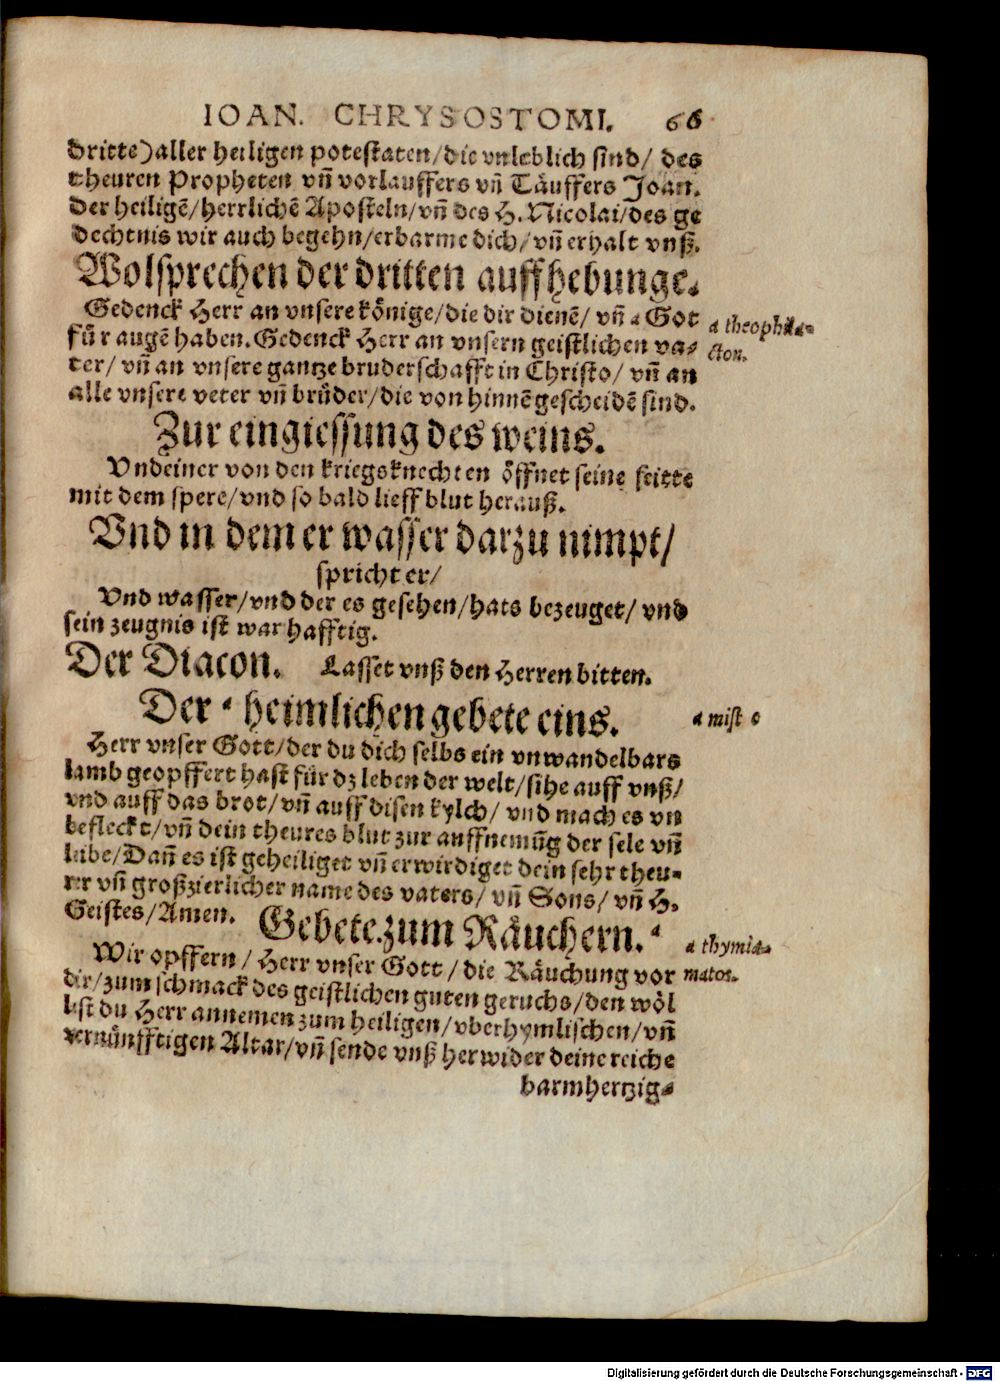 IOAN. CHRYSOSTOMI. 66
dritte) aller heiligen potestaten/die vnleblich sind/ des
theuren Propheten vñ vorlauffers vñ Täuffers Joan.
Der heiligē/herrlichē Aposteln/vñ des H. Nicolai/des ge
dechtnis wir auch begehn/erbarme dich/vñ erhalt vnß.
Wolsprechen der dritten auffhebunge.
Gedenck Herr an vnsere könige/die dir dienē/ vñ a Got
für augē haben. Gedenck Herr an vnsern geistlichen va-
a theophila-
cton.
ter/ vñ an vnsere gantze bruderschafft in Christo/ vñ an
alle vnsere veter vñ brüder/die von hinnē gescheidē sind.
Zur eingiessung des weins.
Vnd einer von den kriegsknechten öffnet seine seitte
mit dem spere/vnd so bald lieff blut herauß.
Vnd in dem er wasser darzu nimpt/
spricht er/
Vnd wasser/vnd der es gesehen/hats bezeuget/ vnd
sein zeugnis ist warhafftig.
Der Diacon. Lasset vnß den Herren bitten.
Der a heimlichen gebete eins.
a mist
Herr vnser Gott/der du dich selbs ein vnwandelbars
lamb geopffert hast für dz leben der welt/sihe auff vnß/
vnd auff das brot/vñ auff disen kylch/ vnd mach es vn
befleckt/vñ dein theures blut zur auffnemūg der sele vñ
libe/Dañ es ist geheiliget vñ erwirdiget dein sehr theu-
rer vñ großzierlicher name des vaters/ vñ Sons/ vñ H.
Geistes/Amen. Gebete zum Räuchern. a
a thymia-
matos.
Wir opffern/ Herr vnser Gott/ die Räuchung vor
dir/zum schmack des geistlichen guten geruchs/den wöl
lest du Herr annemen zum heiligen/vberhymlischen/vñ
vernünfftigen Altar/vñ sende vnß herwider deine reiche
barmhertzig-
Digitalisierung gefördert durch die Deutsche Forschungsgemeinschaft - DFG